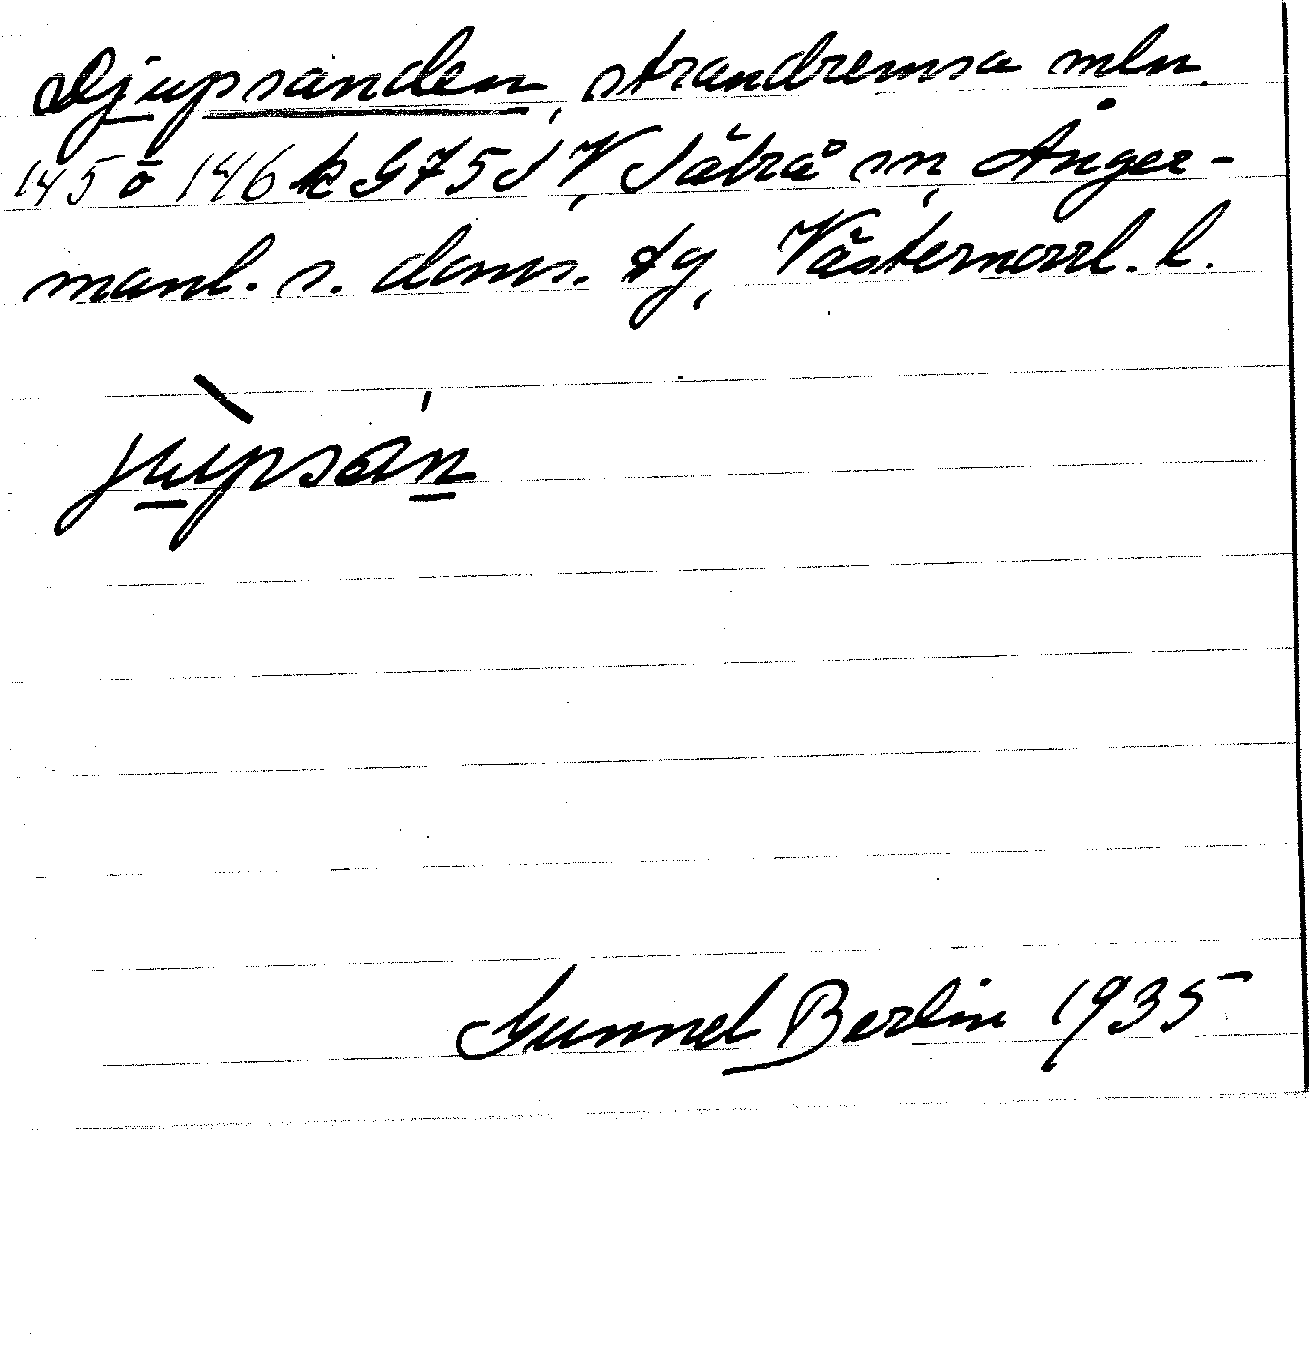 Djupsanden, strandremsa mln.
145 o 146 k G75d V, Sätrå sn, Ånger-
manl. s. doms. tg, Västernorrl. l.
jùpsán
Gunnel Berlin 1935